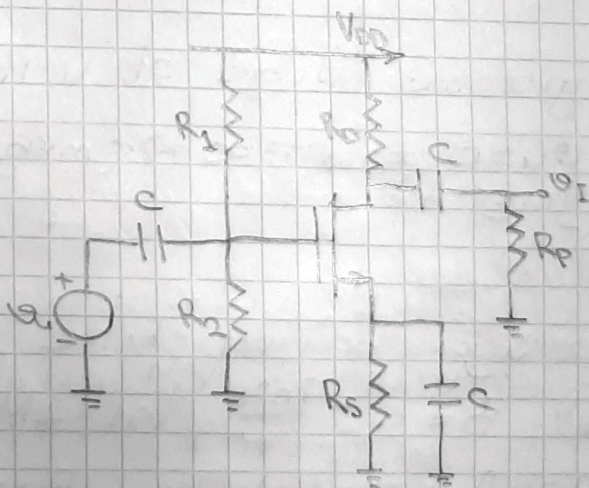 V_DD
R_1
R_D
C
C
v_I
R_P
+
-
R_2
R_S
C